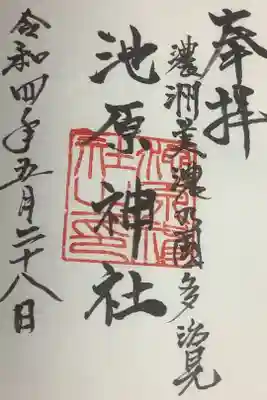 奉拝
濃州美濃の國多治見
池原神社
令和四年五月二十八日